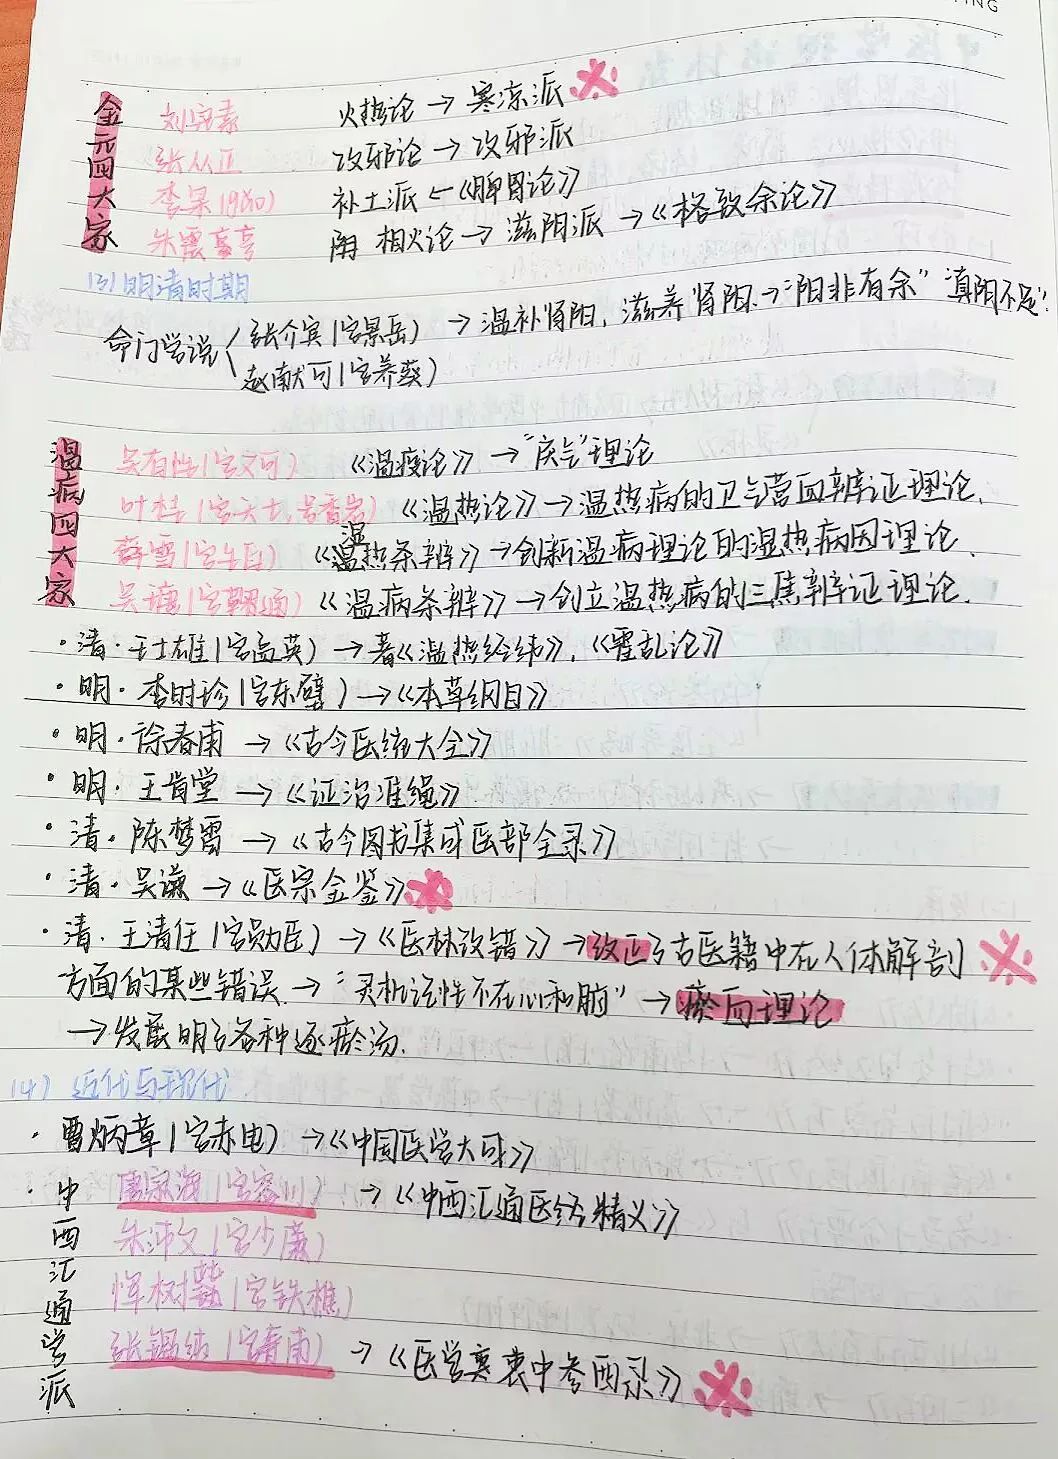 金元四大家
刘完素 火热论 → 寒凉派
张从正 攻邪论 → 攻邪派
李杲 补土派 ← 《脾胃论》
朱震亨 相火论 → 滋阴派 → 《格致余论》
(3) 明清时期
命门学说
张介宾(字景岳) → 温补肾阳,滋养肾阴 → "阳非有余" "真阴不足"
赵献可(字养葵)
温病四大家
吴有性(字又可) 《温疫论》 → "戾气"理论
叶桂(字天士,号香岩) 《温热论》 → 温热病的卫气营血辨证理论.
薛雪(字生白) 《湿热条辨》 → 创新温病理论的湿热病因理论.
吴瑭(字鞠通) 《温病条辨》 → 创立温热病的三焦辨证理论.
·清·王士雄(字孟英) → 著《温热经纬》,《霍乱论》
·明·李时珍(字东壁) → 《本草纲目》
·明·徐春甫 → 《古今医统大全》
·明·王肯堂 → 《证治准绳》
·清·陈梦雷 → 《古今图书集成医部全录》
·清·吴谦 → 《医宗金鉴》
·清·王清任(字勋臣) → 《医林改错》 → 改正了古医籍中在人体解剖
方面的某些错误 → "灵机记性不在心和脑" → 瘀血理论
→ 发展明了各种逐瘀汤.
(4) 近代与现代
·曹炳章(字赤电) → 《中国医学大成》
·中西汇通学派
唐宗海(字容川) → 《中西汇通医经精义》
朱沛文(字少廉)
恽树珏(字铁樵)
张锡纯(字寿甫) → 《医学衷中参西录》